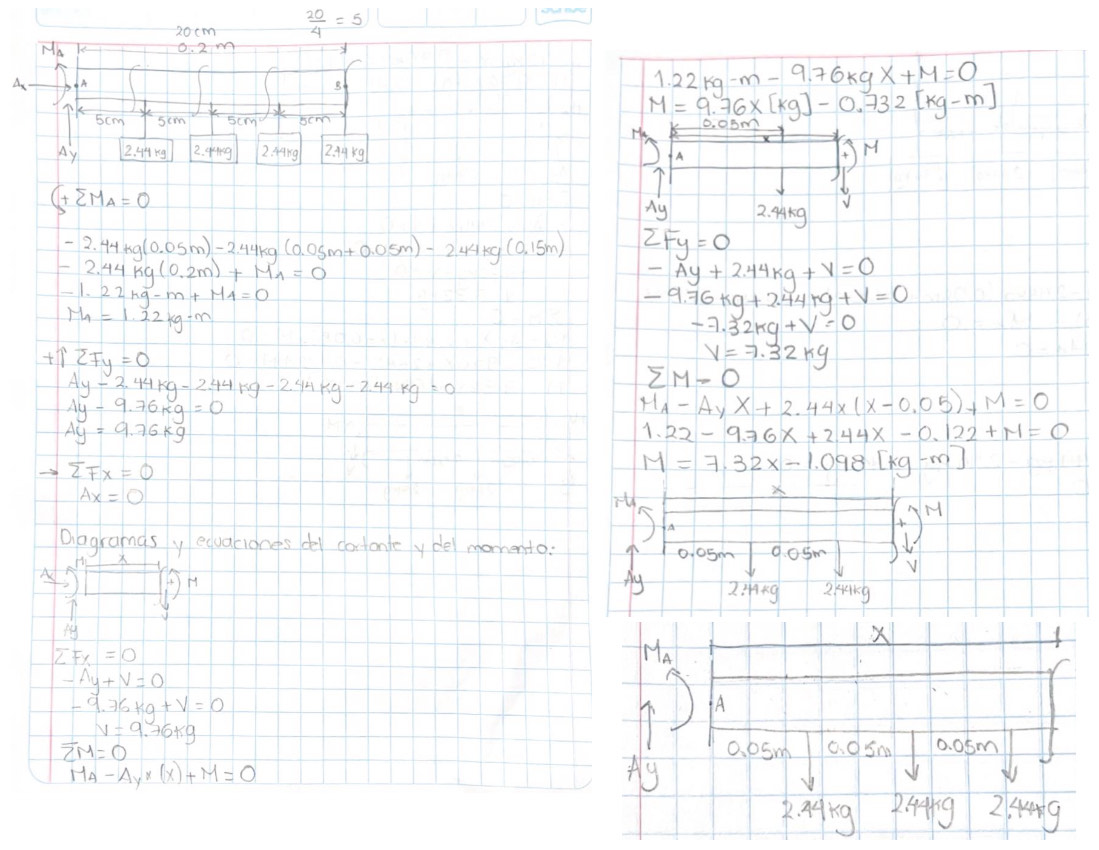 20/4 = 5
20cm
0.2 m
MA
Ax
A
B
5cm 5cm 5cm 5cm
Ay
2.44kg 2.44kg 2.44kg 2.44kg
+ ΣMA = 0
- 2.44kg(0.05m) - 2.44kg (0.05m+0.05m) - 2.44kg (0.15m)
- 2.44 kg(0.2m) + MA = 0
- 1.22kg-m + MA = 0
MA = 1.22kg-m
+↑ ΣFy = 0
Ay - 2.44kg - 2.44kg - 2.44kg - 2.44 kg = 0
Ay - 9.76kg = 0
Ay = 9.76kg
→ ΣFx = 0
Ax = 0
Diagramas y ecuaciones del cortante y del momento:
M x
Ax + M
Ay V
ΣFx = 0
- Ay + V = 0
- 9.76kg + V = 0
V = 9.76kg
ΣM = 0
MA - Ay x (x) + M = 0
1.22kg-m - 9.76kg X + M = 0
M = 9.76x [kg] - 0.732 [kg-m]
0.05m
x
MA
A + M
Ay
V
2.44kg
ΣFy = 0
- Ay + 2.44kg + V = 0
- 9.76kg + 2.44kg + V = 0
- 7.32kg + V = 0
V = 7.32kg
ΣM = 0
MA - Ay X + 2.44x (x - 0.05) + M = 0
1.22 - 9.76X + 2.44X - 0.122 + M = 0
M = 7.32x - 1.098 [kg-m]
x
MA
A + M
0.05m 0.05m
Ay V
2.44kg 2.44kg
x
MA
A
0.05m 0.05m 0.05m
Ay
2.44kg 2.44kg 2.44kg